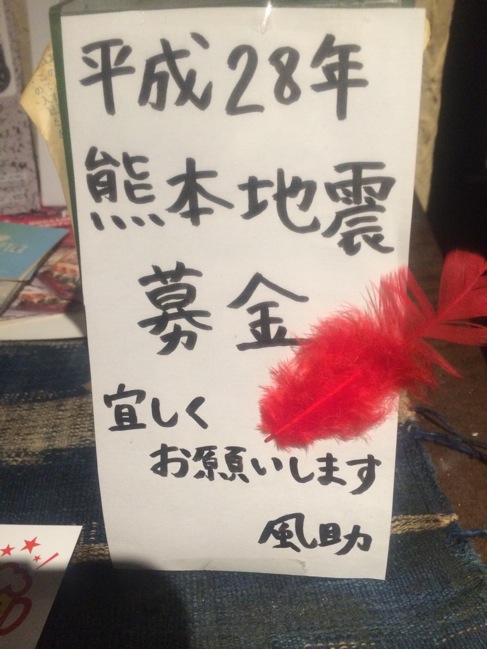 平成28年
熊本地震
募金
宜しく
お願いします
風助